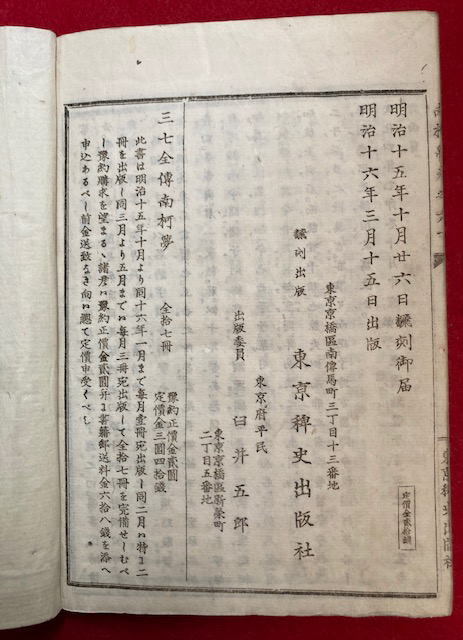 明治十五年十月廿六日飜刻御届
明治十六年三月十五日出版
定價金貳拾錢
東京京橋區南傳馬町三丁目十三番地
飜刻出版 東京稗史出版社
東京府平民
出版委員 臼井五郎
東京京橋區新榮町
二丁目五番地
三七全傳南柯夢 全拾七冊
豫約正價金貳圓
定價金三圓四拾錢
此書は明治十五年十月より同十六年一月まで毎月壹冊宛出版し同二月ハ特ニ二
冊を出版し同三月より五月までハ毎月三冊宛出版して全拾七冊を完備せしむべ
し豫約購求を望まるゝ諸君ハ豫約正價金貳圓并ニ書籍郵送料金六拾八錢を添へ
申込あるべし前金送致なき向ハ總て定價申受くべし
東京稗史出版社